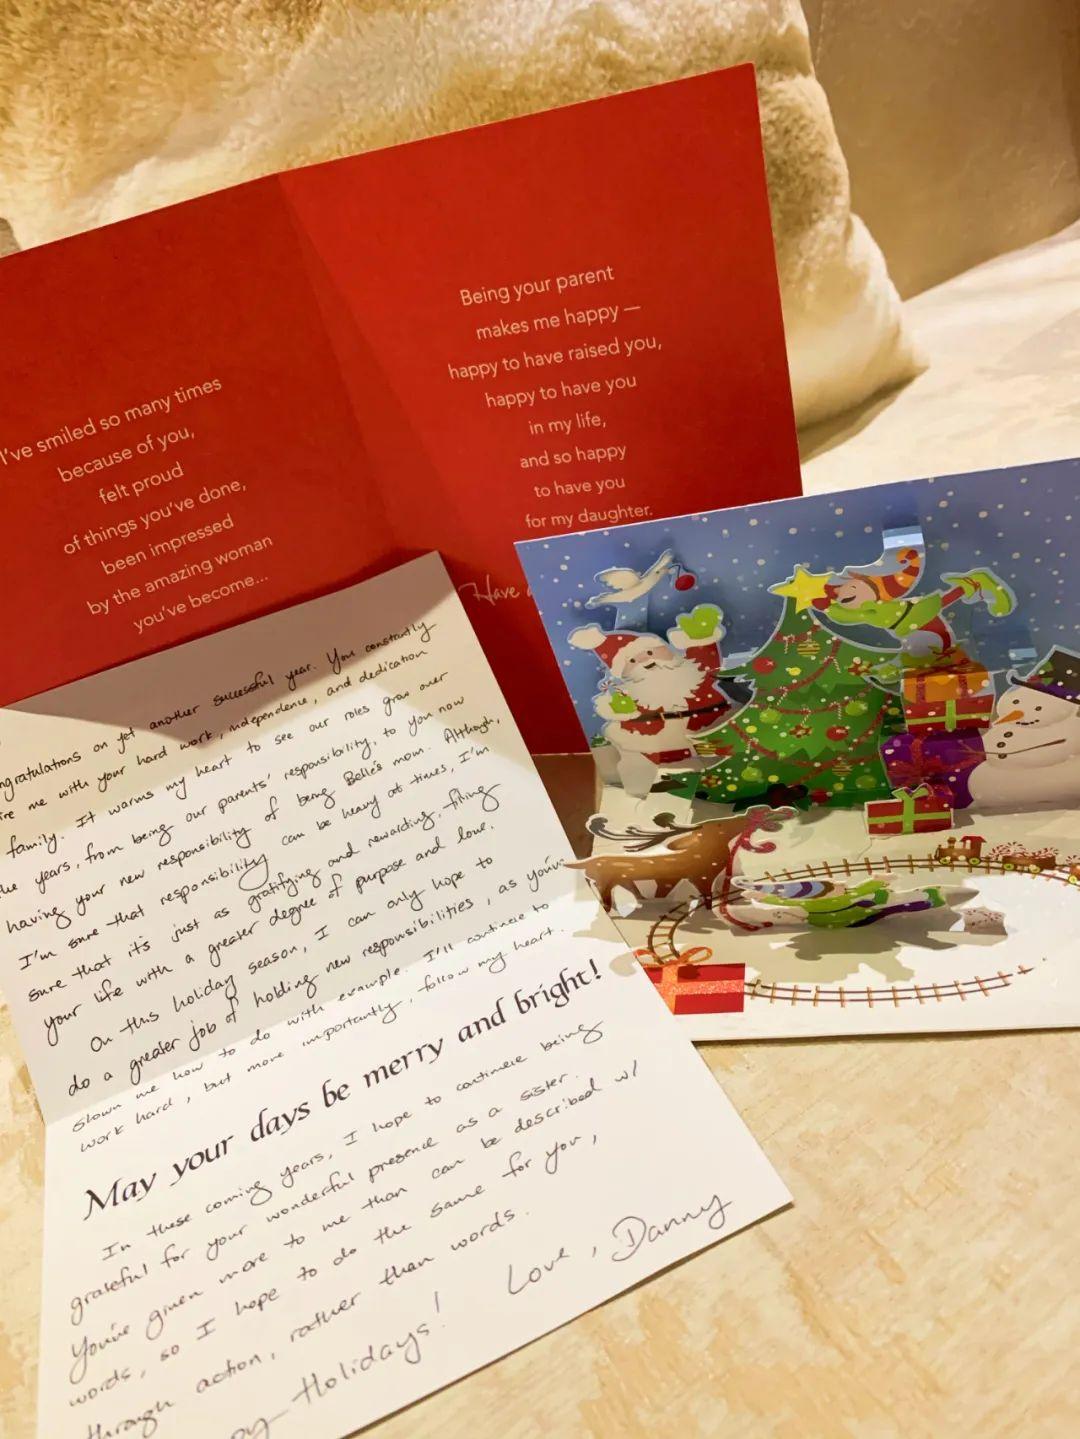 I've smiled so many times
because of you,
felt proud
of things you've done,
been impressed
by the amazing woman
you've become...
Being your parent
makes me happy —
happy to have raised you,
happy to have you
in my life,
and so happy
to have you
for my daughter.
Have a
ngratulations on yet another successful year. You constantly
ire me with your hard work, independence, and dedication
family. It warms my heart to see our roles grow over
the years, from being our parents' responsibility, to you now
having your new responsibility of being Belle's mom. Although,
I'm sure that responsibility can be heavy at times, I'm
sure that it's just as gratifying and rewarding, filling
your life with a greater degree of purpose and love.
On this holiday season, I can only hope to
do a greater job of holding new responsibilities, as you've
shown me how to do with example. I'll continue to
work hard, but more importantly, follow my heart.
May your days be merry and bright!
In these coming years, I hope to continue being
grateful for your wonderful presence as a sister.
You've given more to me than can be described w/
words, so I hope to do the same for you,
through action, rather than words.
py Holidays!
Love, Danny